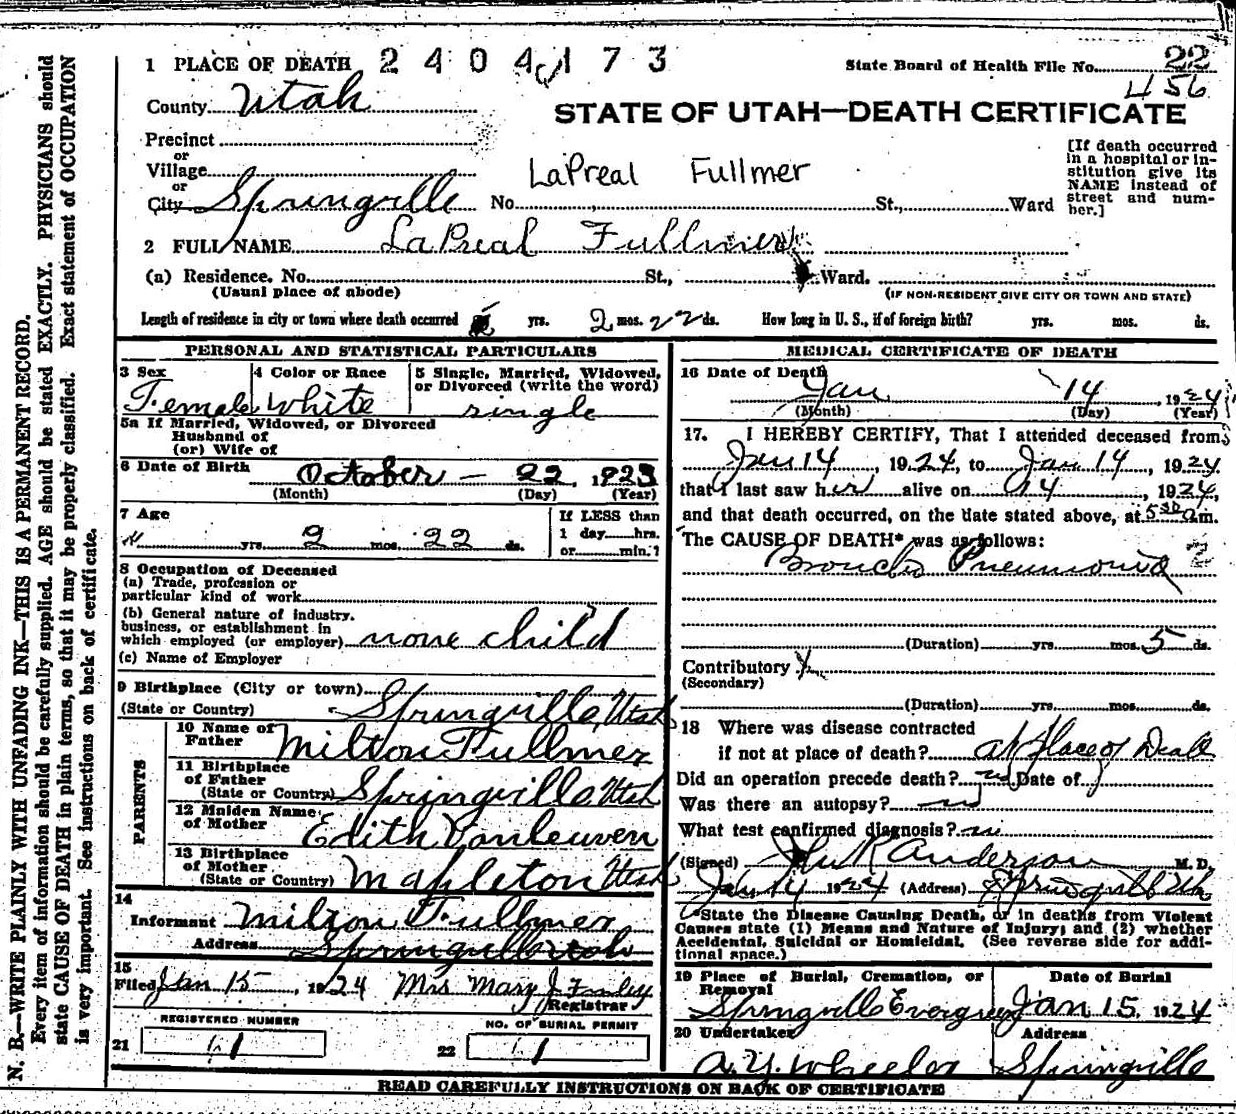 N. B.—WRITE PLAINLY WITH UNFADING INK—THIS IS A PERMANENT RECORD.
Every item of information should be carefully supplied. AGE should be stated EXACTLY. PHYSICIANS should
state CAUSE OF DEATH in plain terms, so that it may be properly classified. Exact statement of OCCUPATION
is very important. See instructions on back of certificate.
1 PLACE OF DEATH 2404173
State Board of Health File No. 22
456
County Utah
STATE OF UTAH—DEATH CERTIFICATE
Precinct
or
Village
or
LaPreal Fullmer
[If death occurred
in a hospital or in-
stitution give its
NAME instead of
street and num-
ber.]
City Springville No. St., Ward
2 FULL NAME LaPreal Fullmer
(a) Residence. No. St., Ward.
(Usual place of abode) (IF NON-RESIDENT GIVE CITY OR TOWN AND STATE)
Length of residence in city or town where death occurred yrs. 2 mos. 22 ds. How long in U. S., if of foreign birth? yrs. mos. ds.
PERSONAL AND STATISTICAL PARTICULARS
3 Sex 4 Color or Race 5 Single, Married, Widowed,
or Divorced (write the word)
Female White single
5a If Married, Widowed, or Divorced
Husband of
(or) Wife of
6 Date of Birth October — 22, 1923
(Month) (Day) (Year)
7 Age
yrs. 2 mos. 22 ds.
If LESS than
1 day hrs.
or min.?
8 Occupation of Deceased
(a) Trade, profession or
particular kind of work
(b) General nature of industry,
business, or establishment in
which employed (or employer) none child
(c) Name of Employer
9 Birthplace (City or town)
(State or Country) Springville, Utah
PARENTS
10 Name of
Father Milton Fullmer
11 Birthplace
of Father
(State or Country) Springville Utah
12 Maiden Name
of Mother Edith Vanleuven
13 Birthplace
of Mother
(State or Country) Mapleton Utah
14
Informant Milton Fullmer
Address Springville Utah
15
Filed Jan 15, 1924 Mrs Mary J Finley
Registrar
REGISTERED NUMBER NO. OF BURIAL PERMIT
21 1 22 1
MEDICAL CERTIFICATE OF DEATH
16 Date of Death
Jan 14, 1924
(Month) (Day) (Year)
17. I HEREBY CERTIFY, That I attended deceased from
Jan 14, 1924, to Jan 14, 1924
that I last saw her alive on 14, 1924,
and that death occurred, on the date stated above, at 5 30 a m.
The CAUSE OF DEATH* was as follows:
Broncho Pneumonia
(Duration) yrs. mos. 5 ds.
Contributory
(Secondary)
(Duration) yrs. mos. ds.
18 Where was disease contracted
if not at place of death? at place of Death
Did an operation precede death? no Date of
Was there an autopsy? no
What test confirmed diagnosis? no
(Signed) Anderson M. D.
Jan 14 1924 (Address) Springville Ut
*State the Disease Causing Death, or in deaths from Violent
Causes state (1) Means and Nature of Injury; and (2) whether
Accidental, Suicidal or Homicidal. (See reverse side for addi-
tional space.)
19 Place of Burial, Cremation, or
Removal
Date of Burial
Springville Evergreen Jan 15, 1924
20 Undertaker Address
A. Y. Wheeler Springville
READ CAREFULLY INSTRUCTIONS ON BACK OF CERTIFICATE